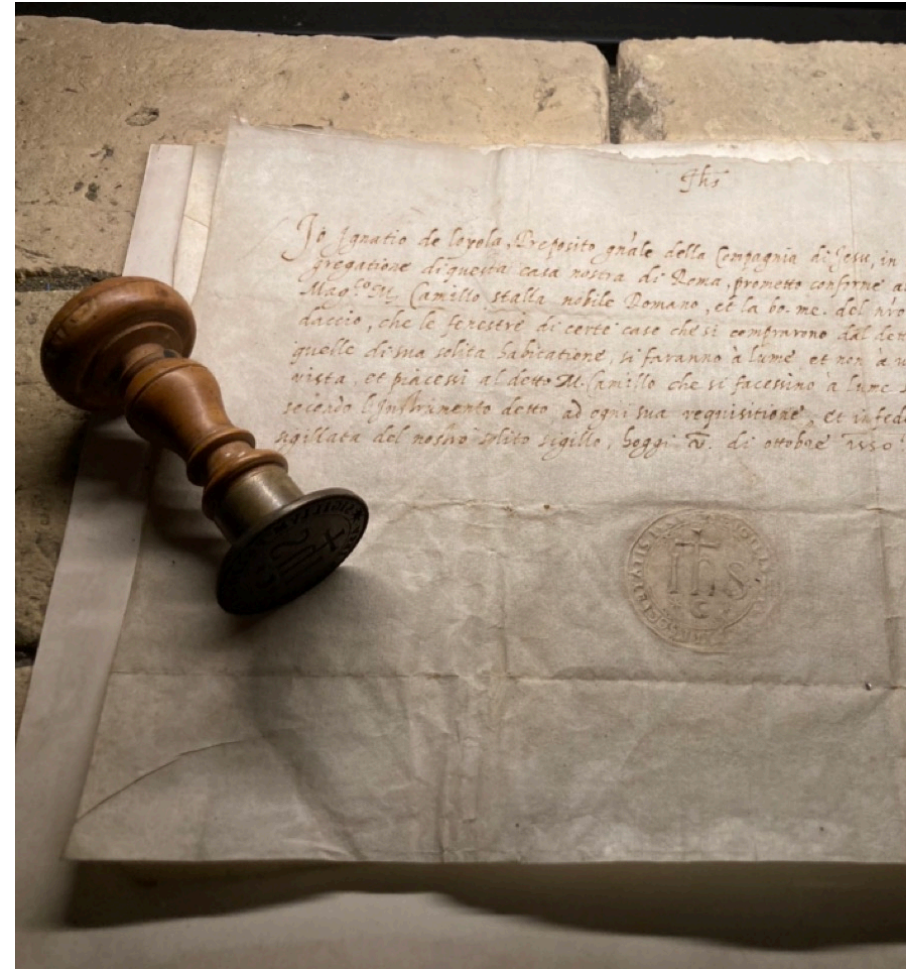 Jhs
Io Ignatio de loyola, Preposito gn̄ale della Compagnia di Jesu, in
gregatione di questa casa nostra di Roma, prometto conforme
Mag.co M. Camillo stalla nobile Romano, et la bo. me. del
daccio, che le fenestre di certe case che si comprarono dal
quelle di sua solita habitatione, si faranno à lume et non à
vista, et piacessi al detto M. Camillo che si facessino à lume
secondo l'Instrumento detto ad ogni sua requisitione, et in fede
sigillata del nostro solito sigillo, hoggi V. di ottobre 1550
Ihs